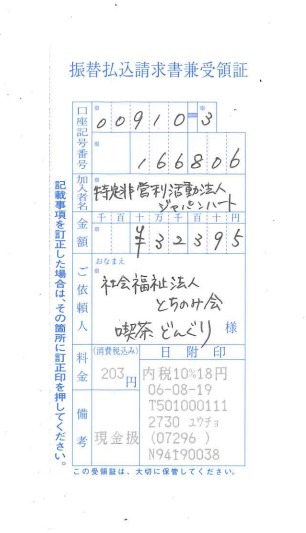 振替払込請求書兼受領証
口座記号番号
00910-3
166806
加入者名
特定非営利活動法人
ジャパンハート
金額
千百十万千百十円
¥32395
おなまえ
ご依頼人
社会福祉法人
とちのみ会
喫茶どんぐり
様
料金
(消費税込み)
203円
日附印
内税10%18円
06-08-19
T501000111
2730 ユウチョ
(07296 )
N94190038
備考
現金扱
この受領証は、大切に保管してください。
記載事項を訂正した場合は、その箇所に訂正印を押してください。